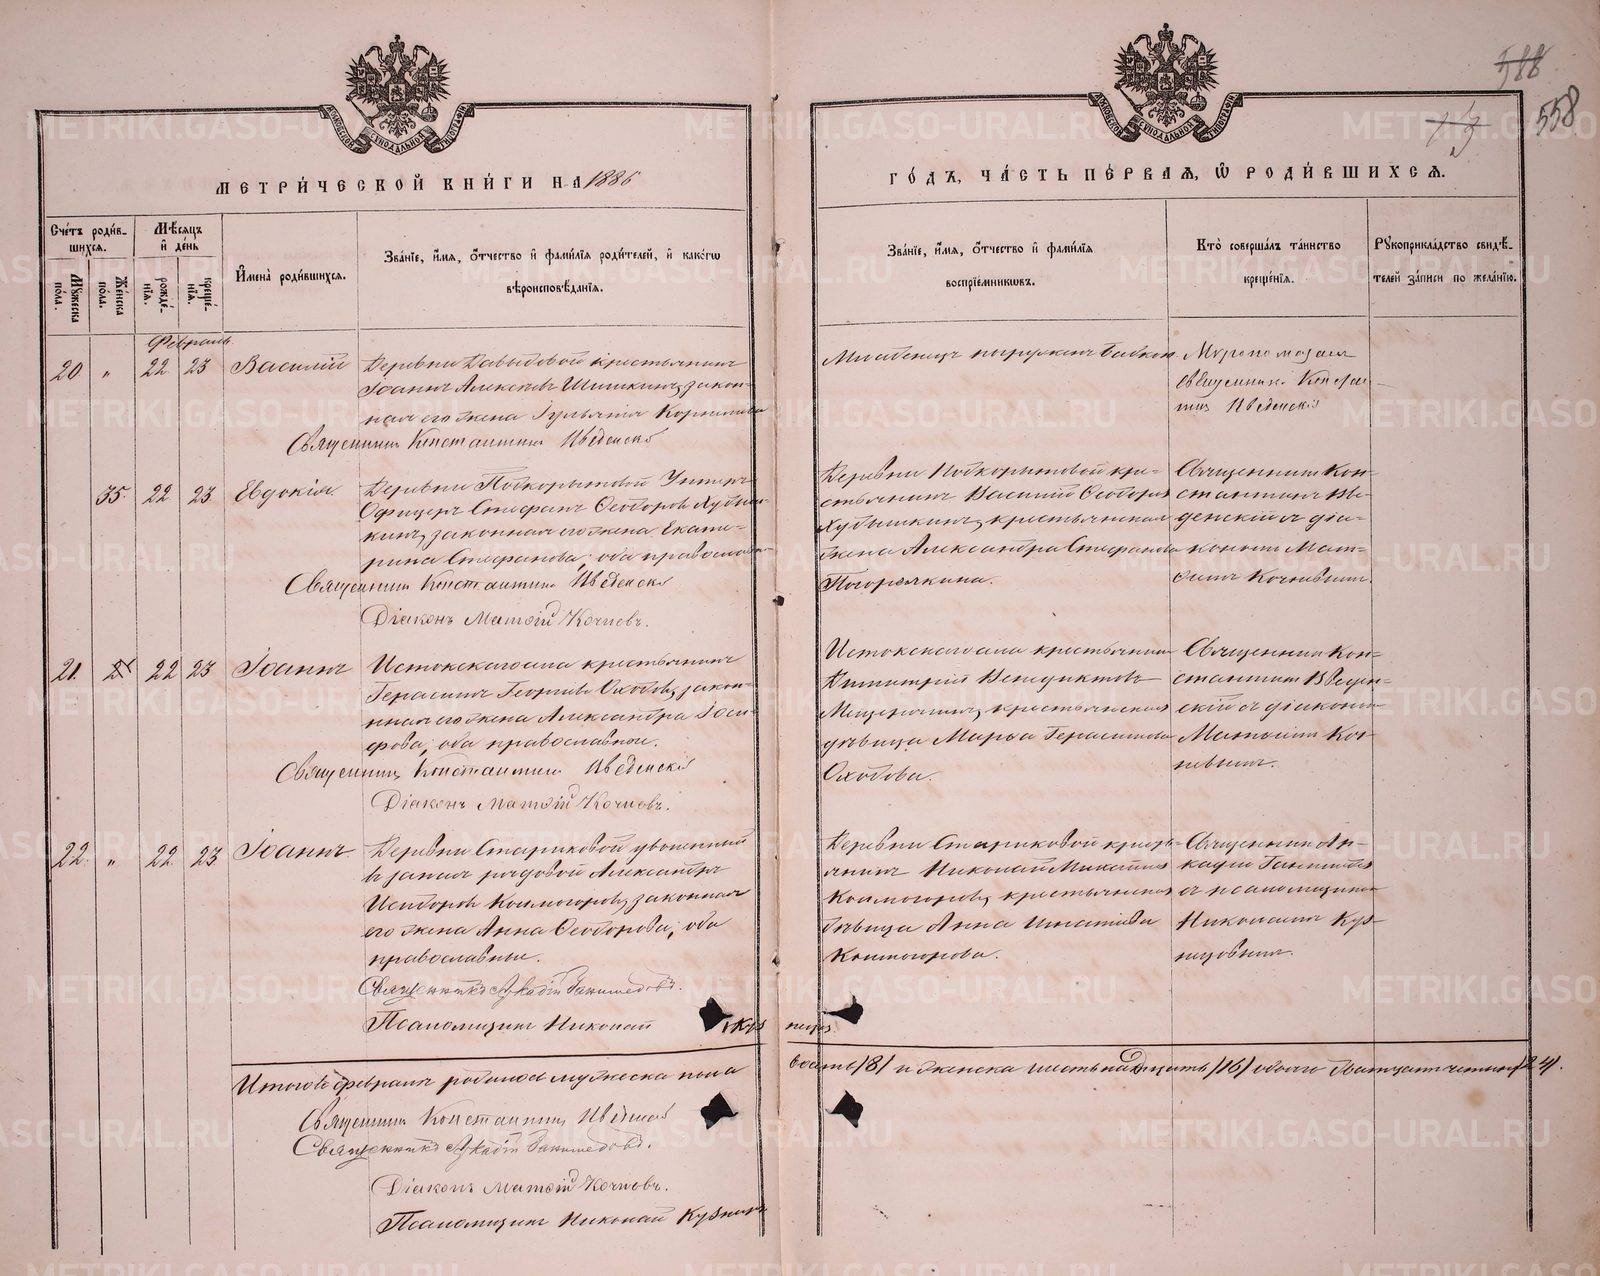 МЕТРИ́ЧЕСКОЙ КНИ́ГИ НА 1886
ГО́ДЪ, ЧА́СТЬ ПЕ́РВАѦ, Ѽ РОДИ́ВШИХСѦ.
588
558
Сче́тъ роди́в-
шихсѧ.
Мꙋ́жеска
по́ла.
Же́нска
по́ла.
Мѣ́сѧцъ
и҆ де́нь
рожде́-
нїѧ.
креще́-
нїѧ.
И҆мена̀ роди́вшихсѧ.
Зва́нїе, и҆́мѧ, ѻ҆́тчество и҆ фами́лїѧ роди́телей, и҆ како́гѡ
вѣроисповѣ́данїѧ.
Зва́нїе, и҆́мѧ, ѻ҆́тчество и҆ фами́лїѧ
воспрїе́мникѡвъ.
Кто̀ соверша́лъ та́инство
креще́нїѧ.
Рꙋкоприкла́дство свидѣ́-
телей за́писи по жела́нїю.
Февраль
20 „ 22 23 Василій
Деревни Давыдовой крестьянинъ
Іоаннъ Алексѣевъ Шишкинъ, закон-
ная его жена Іульянія Корнилова
Священникъ Константинъ Введенскій
Младенецъ погруженъ бабкою
Муропомазалъ
священникъ Констан-
тинъ Введенскій
35 22 23 Евдокія
Деревни Подкорытовой Унтеръ
Офицеръ Стефанъ Ѳеодоровъ
кинъ, законная его жена Екате-
рина Стефанова; оба православн
Священникъ Константинъ Введенскій
Діаконъ Матѳій Кочневъ.
Деревни Подкорытовой кре-
стьянинъ Василій Ѳеодоровъ
крестьянская
жена Александра Стефанова
Погорѣлкина.
Священникъ Кон-
стантинъ Вве-
денскій съ діа-
кономъ Мат-
ѳіемъ Кочневымъ.
21. 22 23 Іоаннъ
Истокскаго села крестьянинъ
Герасимъ Георгіевъ Охобовъ, закон-
ная его жена Александра Іоси-
фова; оба православные.
Священникъ Константинъ Введенскій
Діаконъ Матѳій Кочневъ.
Истокскаго села крестьянинъ
Димитрій Венедиктовъ
крестьянская
дѣвица Марѳа Герасимова
Охобова.
Священникъ Кон-
стантинъ Введен-
скій съ діакономъ
Матѳіемъ Коч-
невымъ.
22. „ 22 23 Іоаннъ
Деревни Стариковой уволенный
въ запасъ рядовой Александръ
Исидоровъ Колмогоровъ, законная
его жена Анна Ѳеодорова; оба
православные.
Священникъ Аркадій Ганимедовъ.
Псаломщикъ Николай Куз нецов
Деревни Стариковой кресть-
янинъ Николай
Колмогоровъ, крестьянская
дѣвица Анна Игнатіева
Колмогорова.
Священникъ Ар-
кадій Ганимедовъ
съ псаломщикомъ
Николаемъ Куз-
нецовымъ.
Итого въ февралѣ родилось мужеска пола восемь /8/ и женска шестьнадцать /16/ обоего двадцать четыре /24/.
Священникъ Константинъ Введенскій
Священникъ Аркадій Ганимедовъ.
Діаконъ Матѳій Кочневъ.
Псаломщикъ Николай Кузнецовъ
METRIKI.GASO-URAL.RU